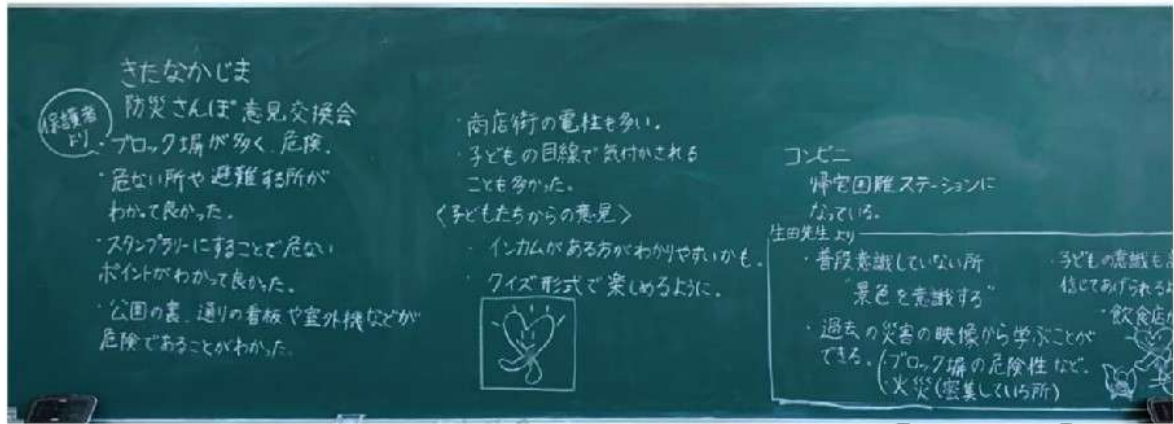 きたなかじま
防災さんぽ 意見交換会
保護者
より
・ブロック塀が多く、危険。
・危ない所や避難する所が
わかって良かった。
・スタンプラリーにすることで危ない
ポイントがわかって良かった。
・公園の裏、通りの看板や室外機などが
危険であることがわかった。
・商店街の電柱も多い。
・子どもの目線で気付かされる
ことも多かった。
〈子どもたちからの意見〉
・インカムがある方がわかりやすいかも。
・クイズ形式で楽しめるように。
コンビニ
帰宅困難ステーションに
なっている。
生田先生より
・普段意識していない所
"景色を意識する"
・過去の災害の映像から学ぶことが
できる。(・ブロック塀の危険性など。
・火災(密集している所)
・子どもの意識も
信じてあげられる
・飲食店